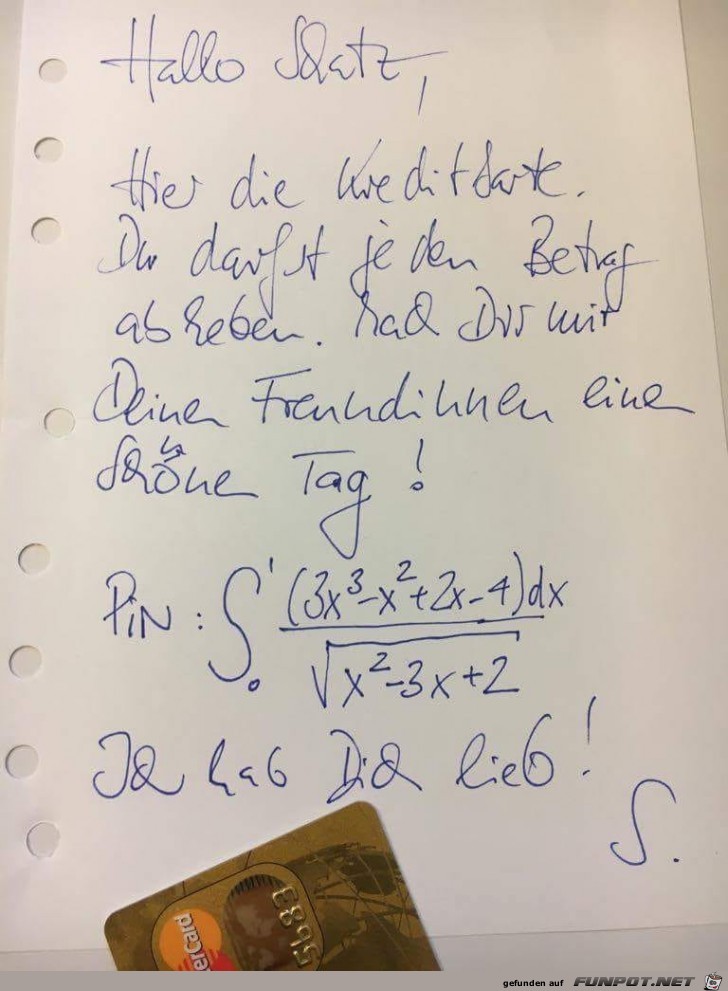 Hallo Schatz,
Hier die Kreditkarte.
Du darfst jeden Betrag
abheben. Mach Dir mit
Deinen Freundinnen einen
schönen Tag!
PiN: ∫₀¹ (3x³-x²+2x-4)dx / √(x²-3x+2)
Ich hab Dich lieb!
S.
5683
erCard
gefunden auf FUNPOT.NET